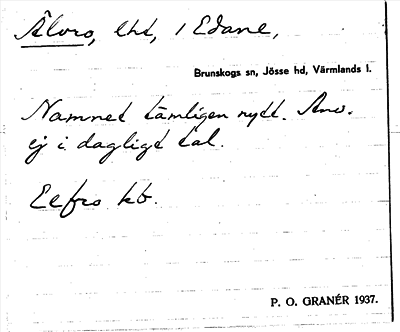 Älvro, lht, i Edane,
Brunskogs sn, Jösse hd, Värmlands l.
Namnet tämligen nytt. Anv.
ej i dagligt tal.
Elfro kb.
P. O. GRANÉR 1937.